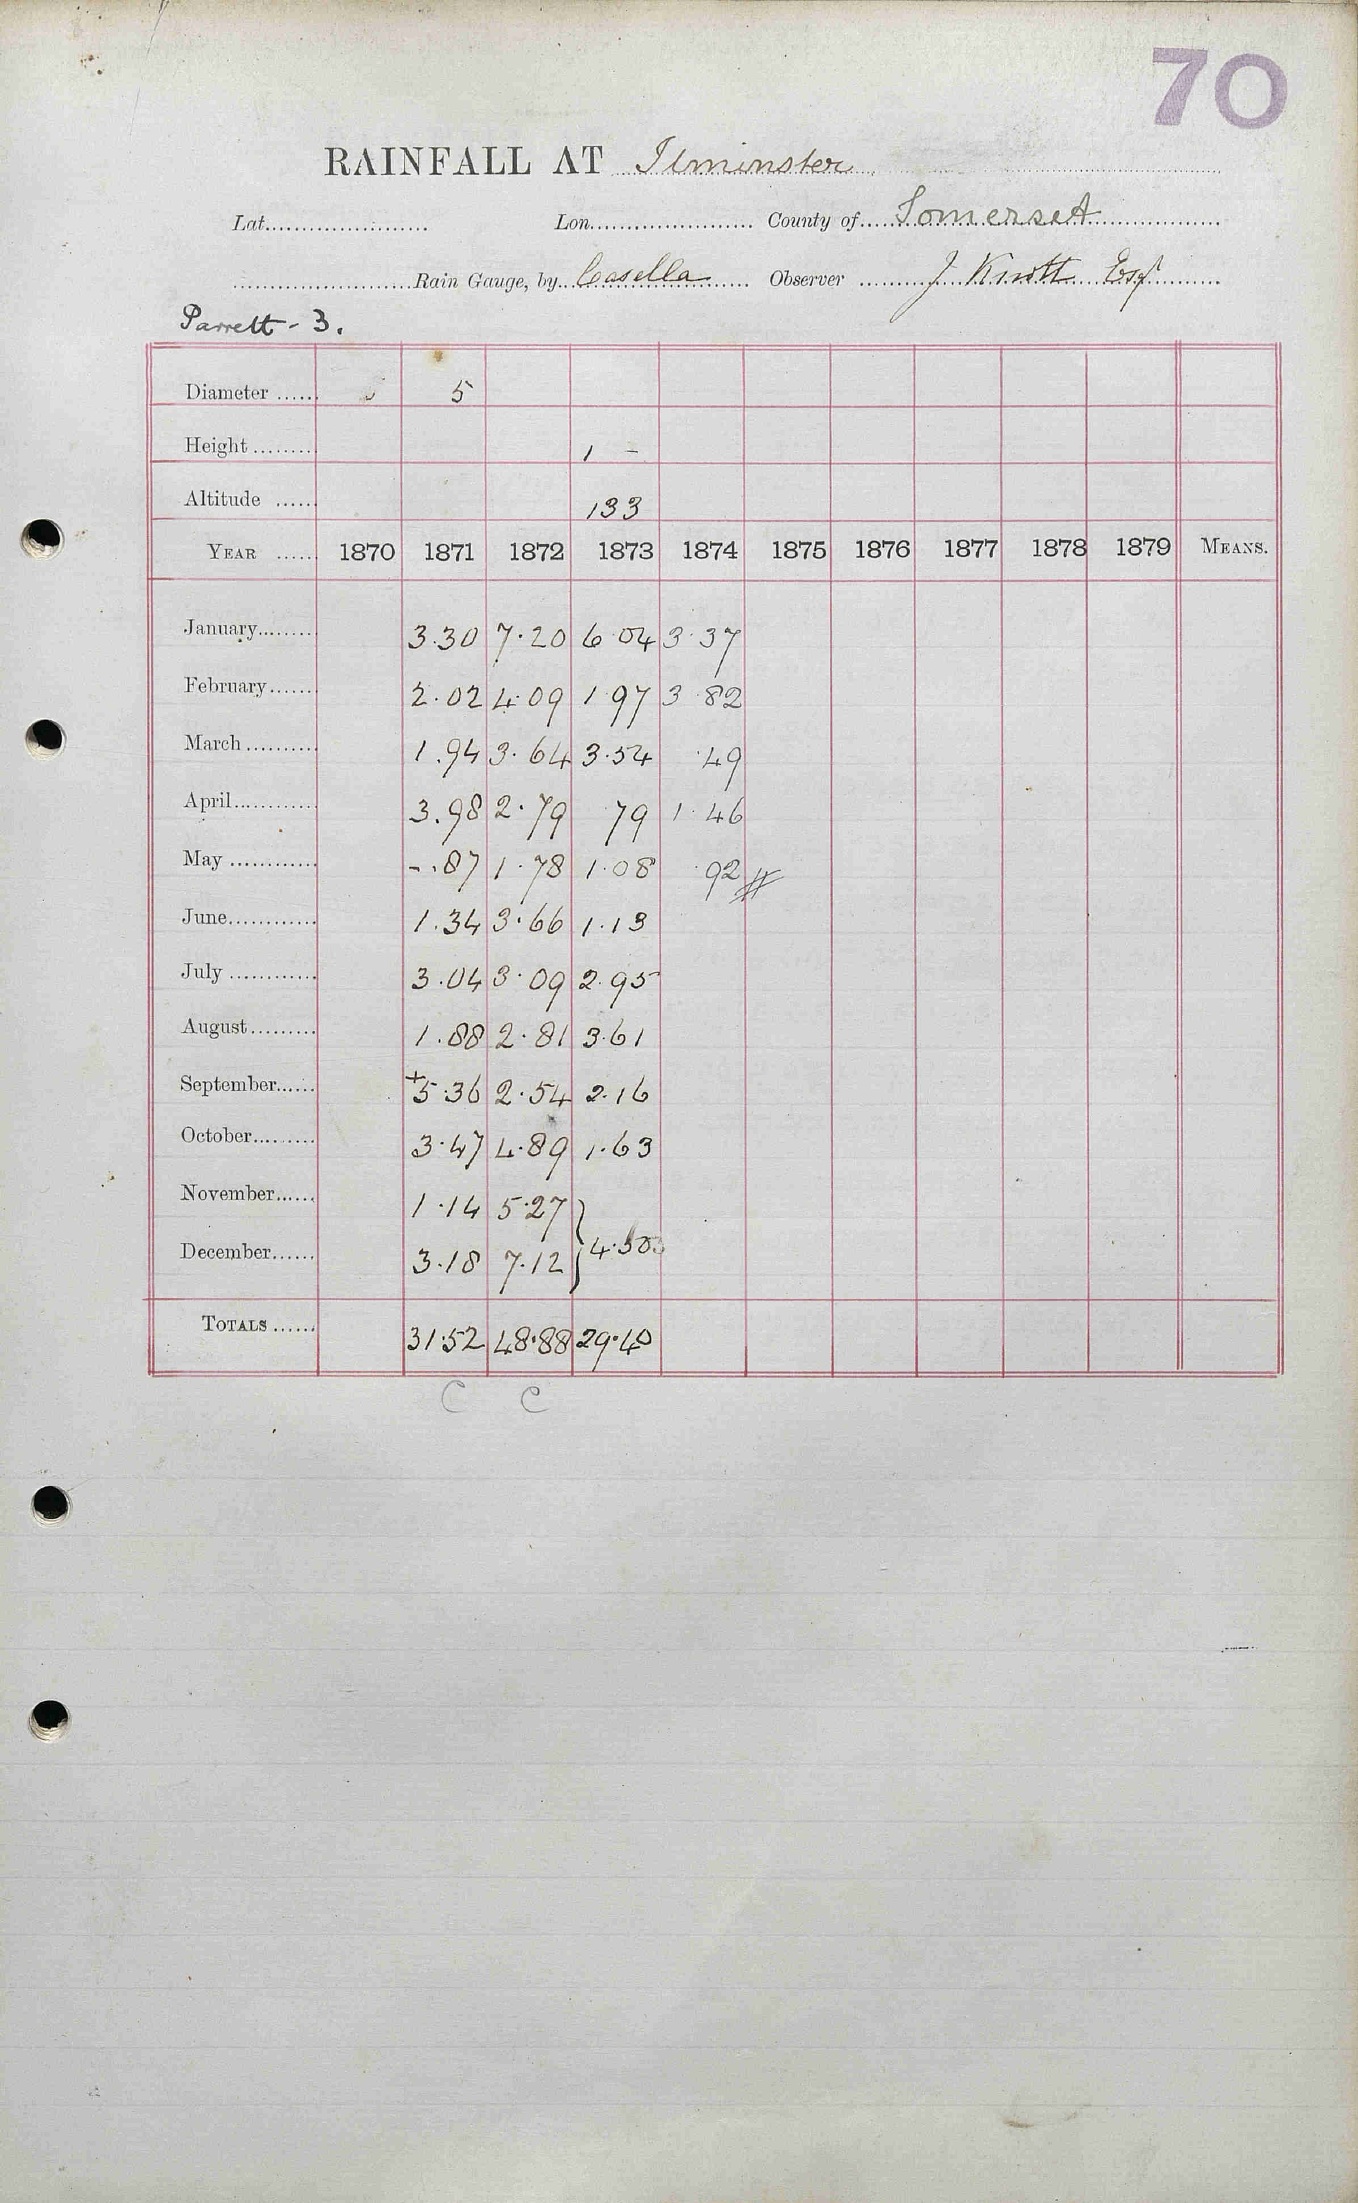 70
RAINFALL AT Ilminster
Lat. Lon. County of Somerset
Rain Gauge, by Casella Observer J. Knott Esq
Parrett - 3.
Diameter 5
Height 1 -
Altitude 133
YEAR 1870 1871 1872 1873 1874 1875 1876 1877 1878 1879 MEANS.
January 3.30 7.20 6.04 3.37
February 2.02 4.09 1.97 3.82
March 1.94 3.64 3.54 .49
April 3.98 2.79 79 1.46
May -.87 1.78 1.08 .92 //
June 1.34 3.66 1.13
July 3.04 3.09 2.95
August 1.88 2.81 3.61
September +5.36 2.54 2.16
October 3.47 4.89 1.63
November 1.14 5.27
December 3.18 7.12 } 4.50
TOTALS 31.52 48.88 29.40
C C